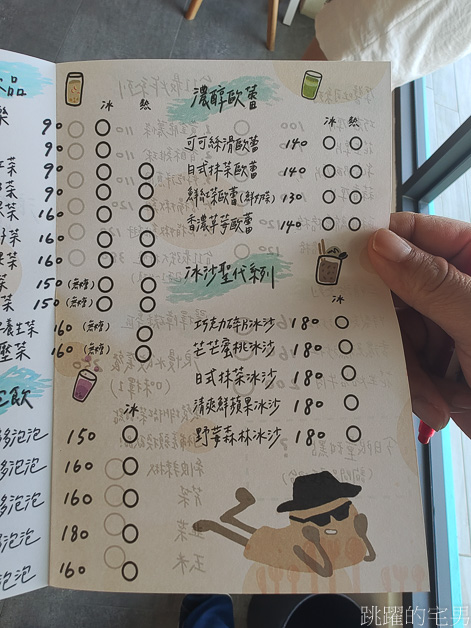 品
樂
90
90
紅茶 90
90
茶 160
160
茶 160
茶 150 (無糖)
茶 150 (無糖)
養生茶 160 (無糖)
壓茶 160 (無糖)
冰 熱
飲
冰
多泡泡 150
多泡泡 160
多泡泡 160
泡泡 180
泡泡 160
濃醇歐蕾
冰 熱
可可絲滑歐蕾 140
日式抹茶歐蕾 140
鮮紅茶歐蕾(鮮奶茶) 130
香濃芋芋歐蕾 140
冰沙聖代系列
冰
巧克力碎片冰沙 180
芒芒蜜桃冰沙 180
日式抹茶冰沙 180
清爽鮮蘋果冰沙 180
野莓森林冰沙 180
跳躍的宅男